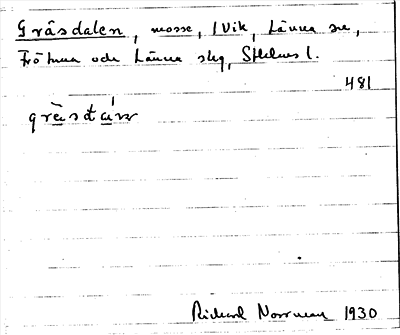 Gräsdalen, mosse, 1 Vik, Länna sn,
Frötuna och Länna skg, Sthlms l.
481
gräsdánw
Richard Norrman 1930